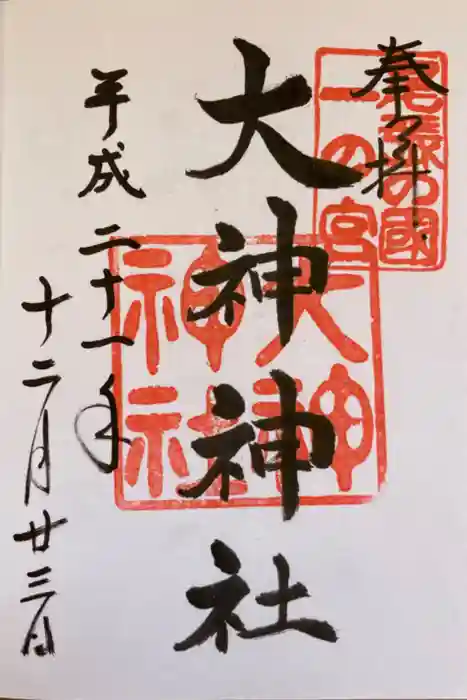 奉拝
尾張の國
一の宮
大神神社
大神神社
平成二十一年
十二月廿三日